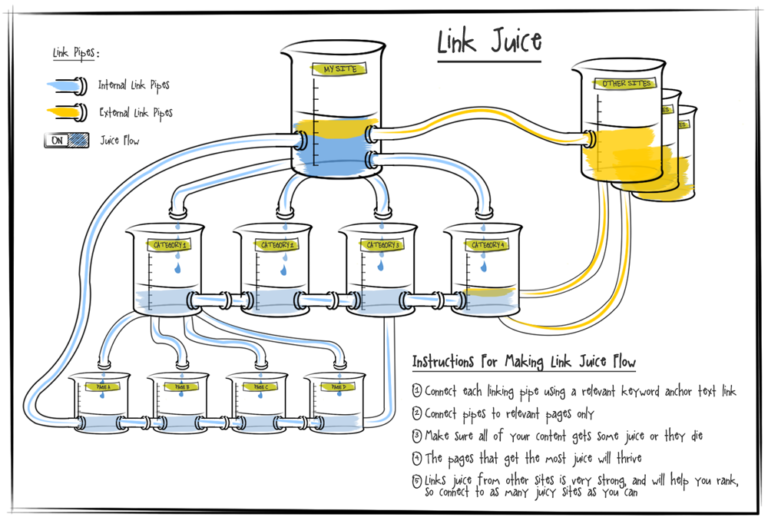 Link Juice
Link Pipes:
Internal Link Pipes
External Link Pipes
ON
Juice Flow
MY SITE
OTHER SITES
CATEGORY 1
CATEGORY 2
CATEGORY 3
CATEGORY 4
PAGE A
PAGE B
PAGE C
PAGE D
Instructions For Making Link Juice Flow
1 Connect each linking pipe using a relevant keyword anchor text link
2 Connect pipes to relevant pages only
3 Make sure all of your content gets some juice or they die
4 The pages that get the most juice will thrive
5 Links juice from other sites is very strong, and will help you rank,
so connect to as many juicy sites as you can